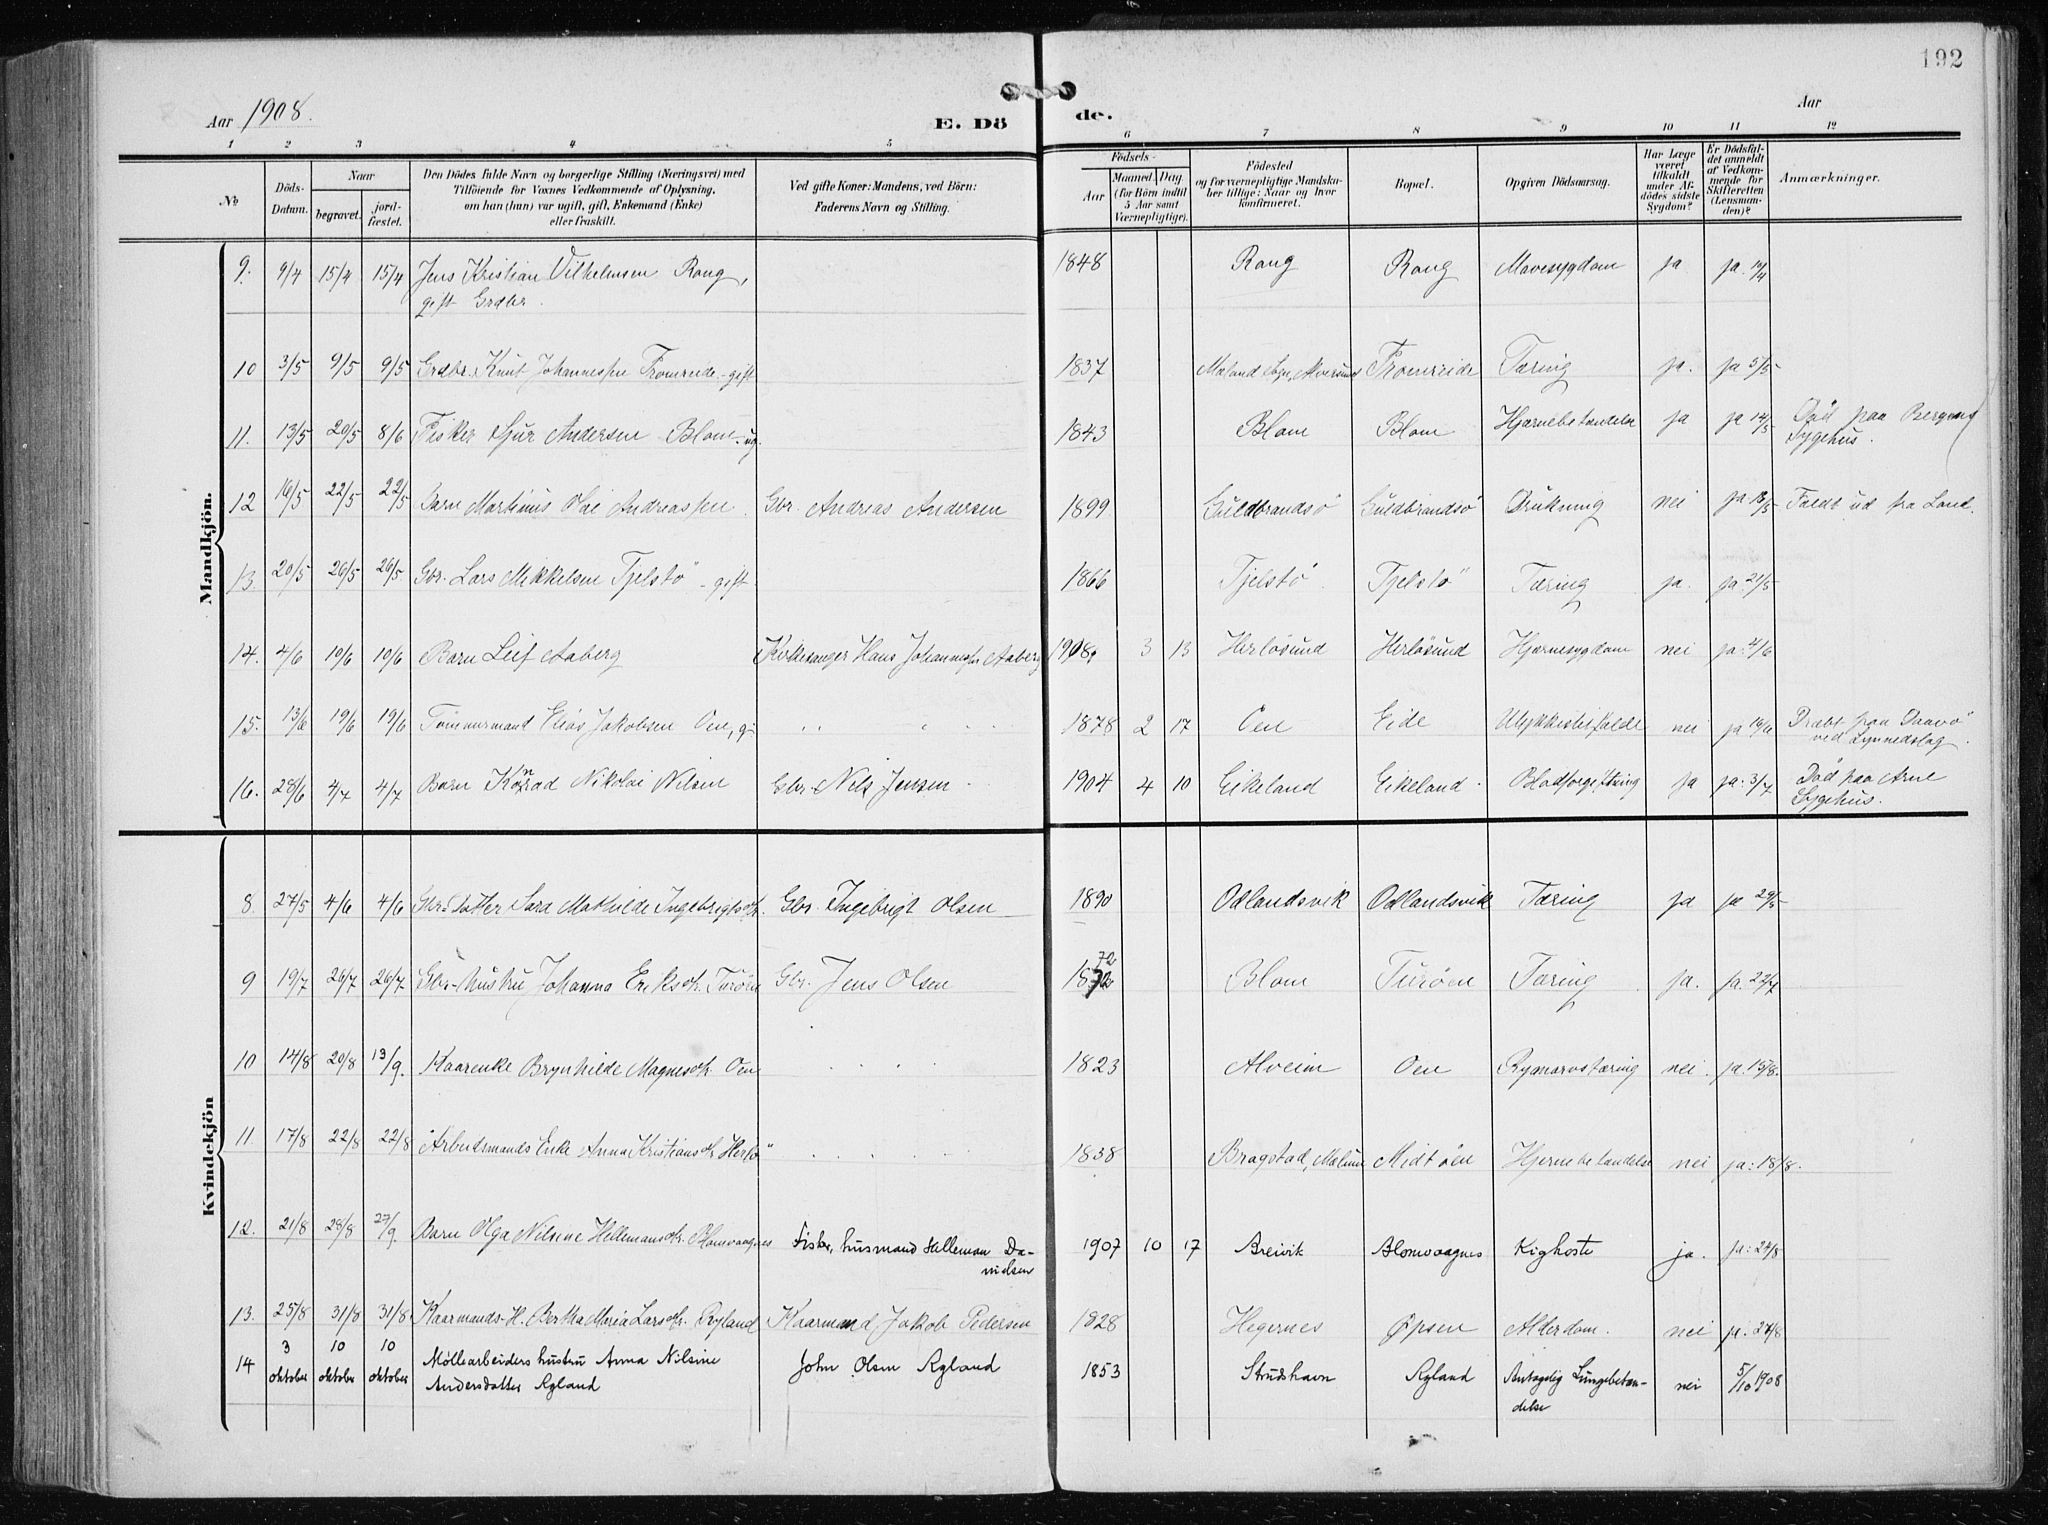 192
Aar 1908.
E. Dö
de.
Aar
1 2 3 3 4 5 6 7 8 9 10 11 12
No
Döds-Datum.
Naar
begravet.
jord-fæstet.
Den Dödes fulde Navn og borgerlige Stilling (Næringsvei) med
Tilföiende for Voxnes Vedkommende af Oplysning,
om han (hun) var ugift, gift, Enkemand (Enke)
eller fraskilt.
Ved gifte Koner: Mandens, ved Börn:
Faderens Navn og Stilling.
Födsels-
Aar
Maaned. Dag.
(for Börn indtil
5 Aar samt
Værnepligtige).
Födested
og for værnepligtige Mandska-
ber tillige: Naar og hvor
konfirmeret.
Bopæl.
Opgiven Dödsaarsag.
Har Læge
været
tilkaldt
under Af-
dödes sidste
Sygdom?
Er Dödsfal-
det anmeldt
af Vedkom-
mende for
Skifteretten
(Lensman-
den)?
Anmærkninger.
Mandkjön.
9. 9/4 15/4 15/4 Jens Kristian Vilhelmsen Rong, 1848 Rong Rong Mavesygdom ja ja
gift Grdbr.
10 3/5 9/5 9/5 Grdbr. Knut Johannessen Fromreide - gift 1837 Fromreide Tæring ja. ja 5/5
11. 13/5 20/5 8/6 Fisker Sjur Andersen Blom - ug. 1843 Blom Blom Hjærnebetændelse ja ja 14/5 Död paa Bergens
Sygehus.
12 16/5 22/5 22/5 Barn Martinus Olai Andreassen Gbr. Andreas Andersen 1899 Guldbrandsö Guldbrandsö Drukning nei ja 18/5 Faldt ud fra Land.
13. 20/5 26/5 26/5 Gbr. Lars Mikkelsen Tjelstö - gift 1866 Tjelstö Tjelstö Tæring ja. ja: 21/5
14. 4/6 10/6 10/6 Barn Leif Aaberg Kirkesanger Hans Johannessen Aaberg 1908 3 13 Herlösund Herlösund Hjærnesygdom nei ja: 4/6
15. 13/6 19/6 19/6 Tömmermand Elias Jakobsen Oen, g. 1878 2 17 Oen Eide Ulykkestilfælde nei ja 16/6 Dræbt paa
ved Lynnedslag.
16. 28/6 4/7 4/7 Barn Konrad Nikolai Nilsen Gbr. Nils Jensen 1904 4 10 Eikeland Eikeland Blodforgiftning ja ja: 3/7 Död paa Arne
Sygehus.
Kvindekjön
8. 27/5 4/6 4/6 Gbr. Datter Sara Mathilde Ingebrigtsdtr. Gbr. Ingebrigt Olsen 1890 Odlandsvik Odlandsvik Tæring ja ja 29/5
9 19/7 26/7 26/7 Gbr-hustru Johanna Eriksdtr. Turöen Gbr. Jens Olsen 1872 72 Blom Turöen Tæring ja. ja. 22/7
10 14/8 20/8 13/9. Kaarenke Brynhilde Magnesdtr Oen 1823 Alveim Oen Rygmarvstæring nei. ja. 15/8.
11. 17/8 22/8 22/8 Arbeidsmands Enke Anna Kristiansdtr Herlö 1838 Bragstad, Mælum Midtöen Hjernebetændelse nei ja: 18/8.
12. 21/8 28/8 27/9 Barn Olga Nilsine Hellemansdtr. Blomvaagnes Fisker, husmand Helleman Da-
nielsen 1907 10 17 Breivik Blomvaagnes Kighoste ja. ja: 24/8
13. 25/8 31/8 31/8 Kaarmands-H. Bertha Maria Larsdtr. Ryland Kaarmand Jakob Pedersen 1828 Hegernes Öpsen Alderdom. nei ja. 27/8
14 3 oktober 10 oktober 10 oktober Möllearbeiders hustru Anna Nilsine John Olsen Ryland 1853 Strudshavn Ryland Antagelig Lungebetæn-
Andersdatter Ryland delse nei 5/10 1908